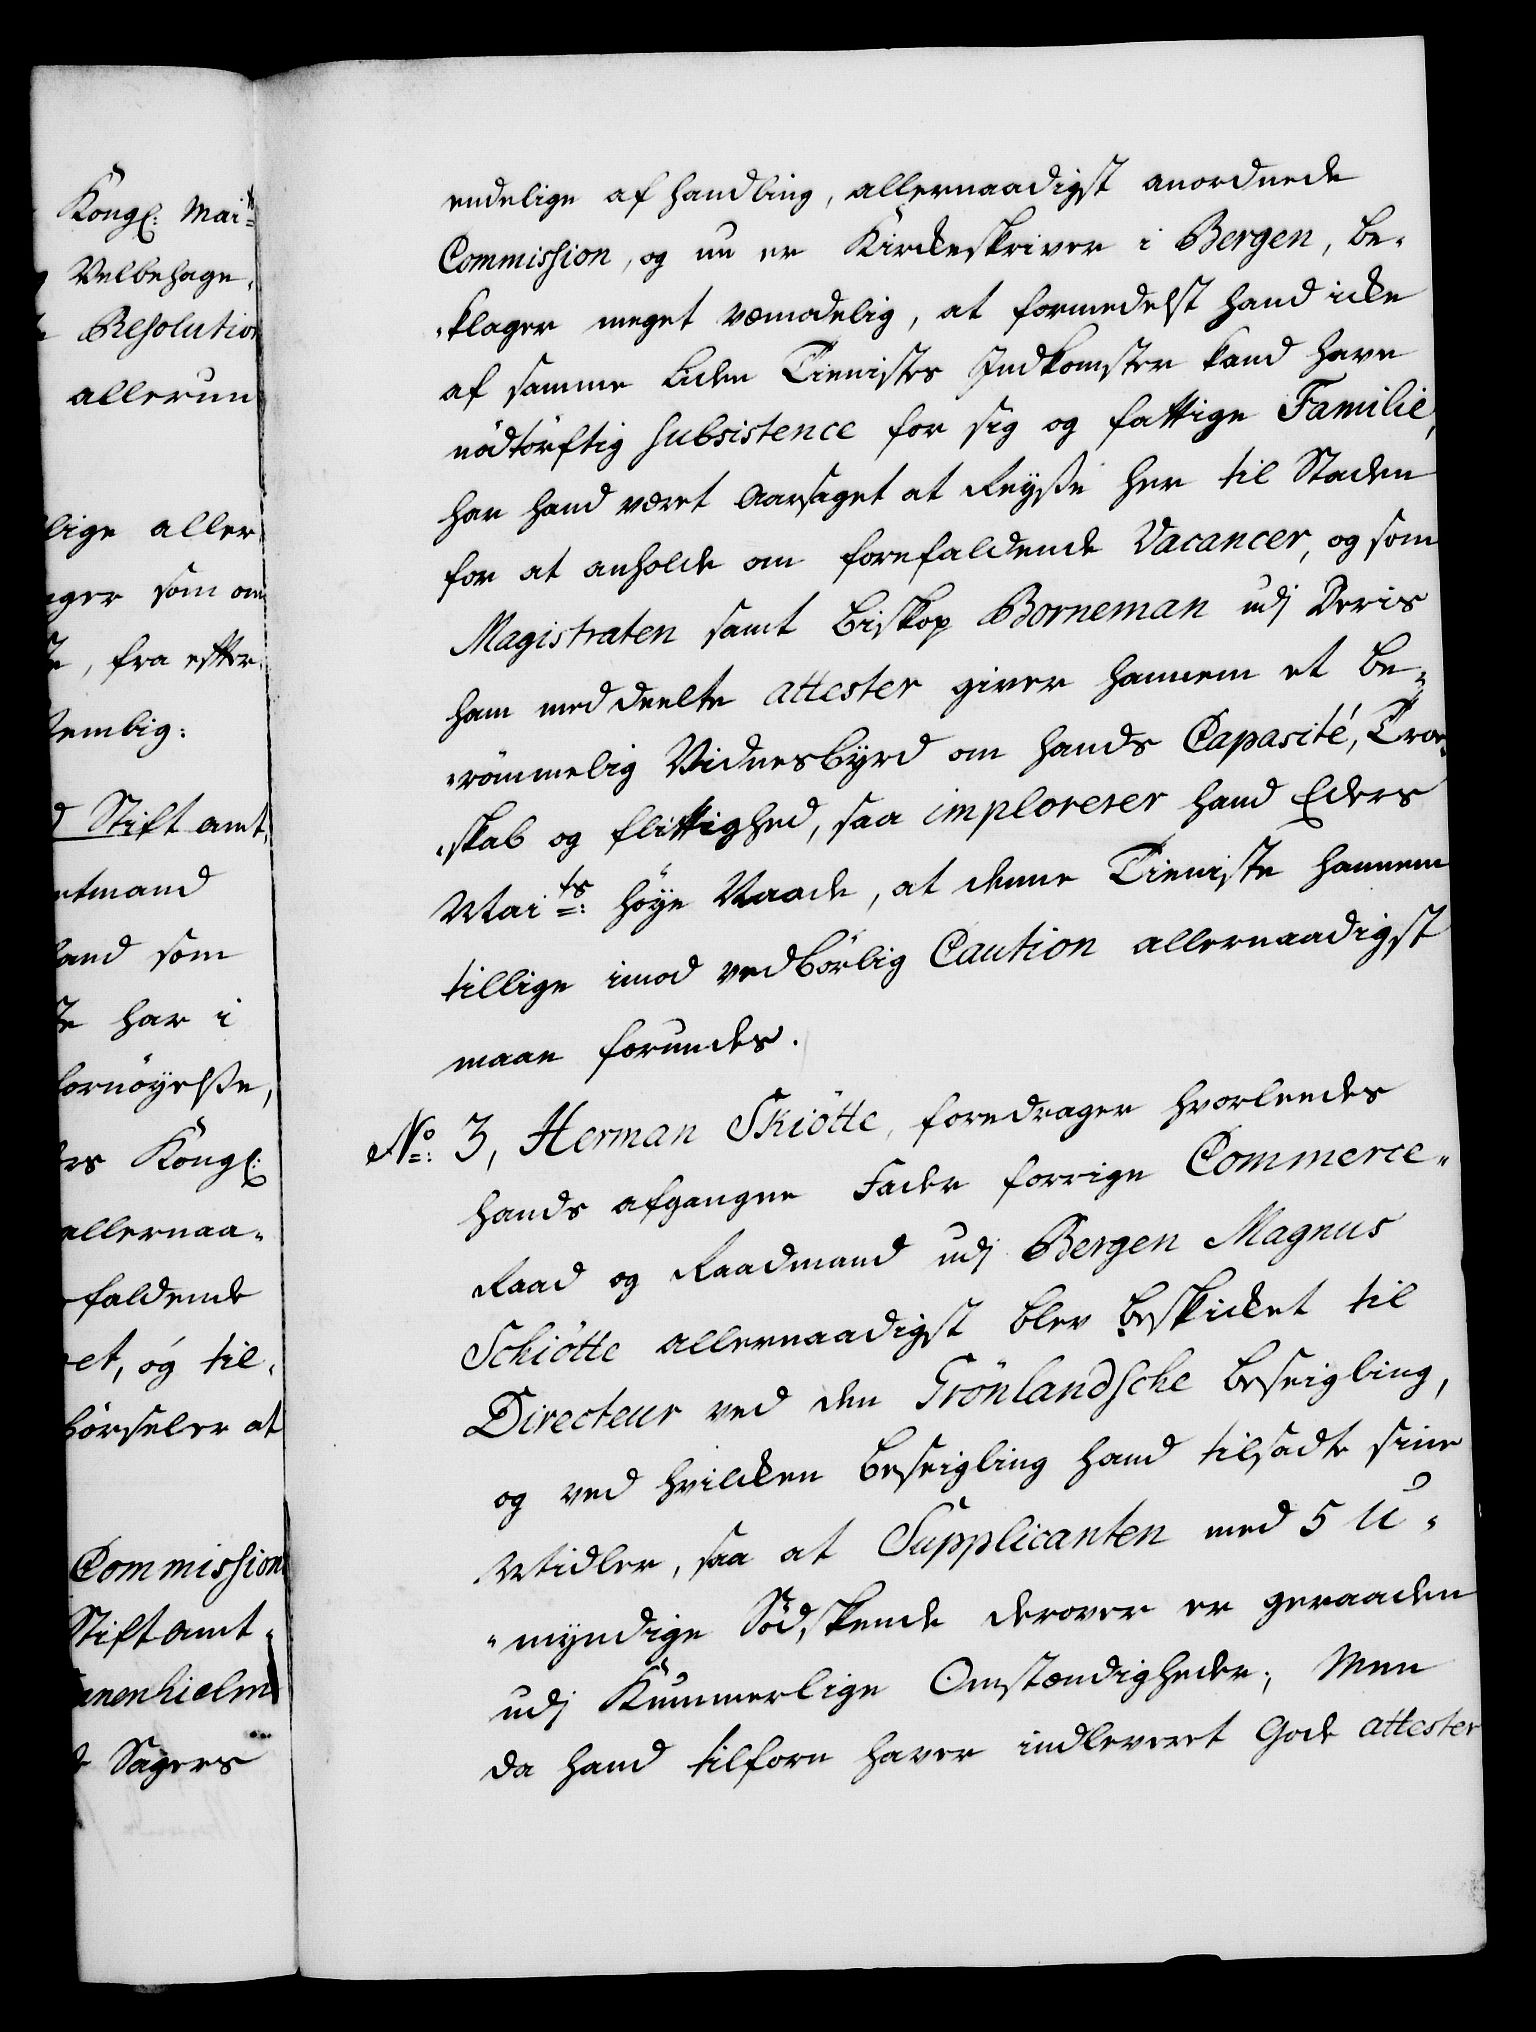 Kongl: Mai
Velbehage,
Resolution
allerun
lige aller
ager som om
, fra efter,
Stift amt,
mand
som
har i
fornøyelsse,
Kongl:
allernaa-
faldende
et, og til,
at
Commission
Stift amt-
Sagers
endelige afhandling, allernaadigst anordnede
Commission, og nu er Kirkeskriver i Bergen, be-
klager meget vemodelig, at formedelst hand icke
af samme liden Tienistes Indkomster kand have
nödtörftig Subsistence for sig og fattige Familie,
har hand været aarsaget at Reysse her til Staden
for at anholde om forefaldende Vacancer, og som
Magistraten samt Biskop Borneman udj Deris
ham meddeelte attester giver hannem et be-
römmelig Vidnesbyrd om hands Capasité, Troe-
skab og flittighed, saa imploreter hand Eders
Maits: höye Naade, at denne Tieniste hannem
tillige imod vedbörlig Caution allernaadigst
maae forundes.
No: 3, Herman Skiötte, foredrager hvorledes
hands afgangne Fader forrige Commerce-
Raad og Raadmand udj Bergen Magnus
Schiötte allernaadigst blev beskicket til
Directeur ved den Grönlandsche beseigling,
og ved hvilcken beseigling hand tilsadte sine
Midler, saa at Supplicanten med 5 U-
myndige Södskende derover er geraaden
udj Kummerlige Omstændigheder; Men
da hand tilforn haver indleveret Gode attester